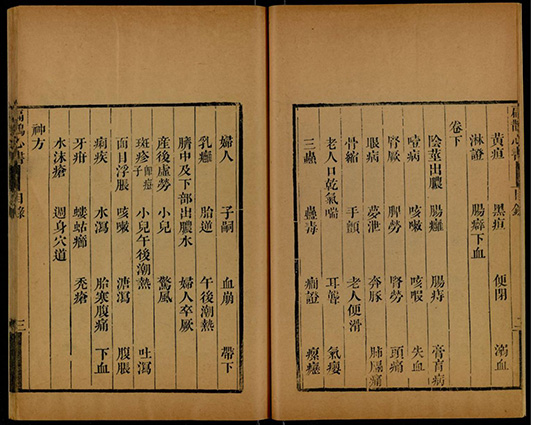 黃疸 黑疸 便閉 溺血
淋證 腸癖下血
卷下
陰莖出膿 腸癰 腸痔 膏肓病
噎病 咳嗽 咳暇 失血
腎厥 脾勞 腎勞 頭痛
眼病 夢泄 奔豚 肺膓痛
骨縮 手顫 老人便滑
老人口乾氣喘 耳聾 氣癭
三蟲 蠱毒 癇證 瘰癧
扁鵲心書 目錄 二
婦人 子嗣 血崩 帶下
乳癰 胎逆 午後潮熱
臍中及下部出膿水 婦人卒厥
產後虛勞 小兒 驚風
斑疹 小兒午後潮熱 吐瀉
面目浮脹 咳嗽 溏瀉 腹脹
痢疾 水瀉 胎寒腹痛 下血
牙疳 螻蛄癤 禿瘡
水沫瘡 週身穴道
神方
扁鵲心書 目錄 三